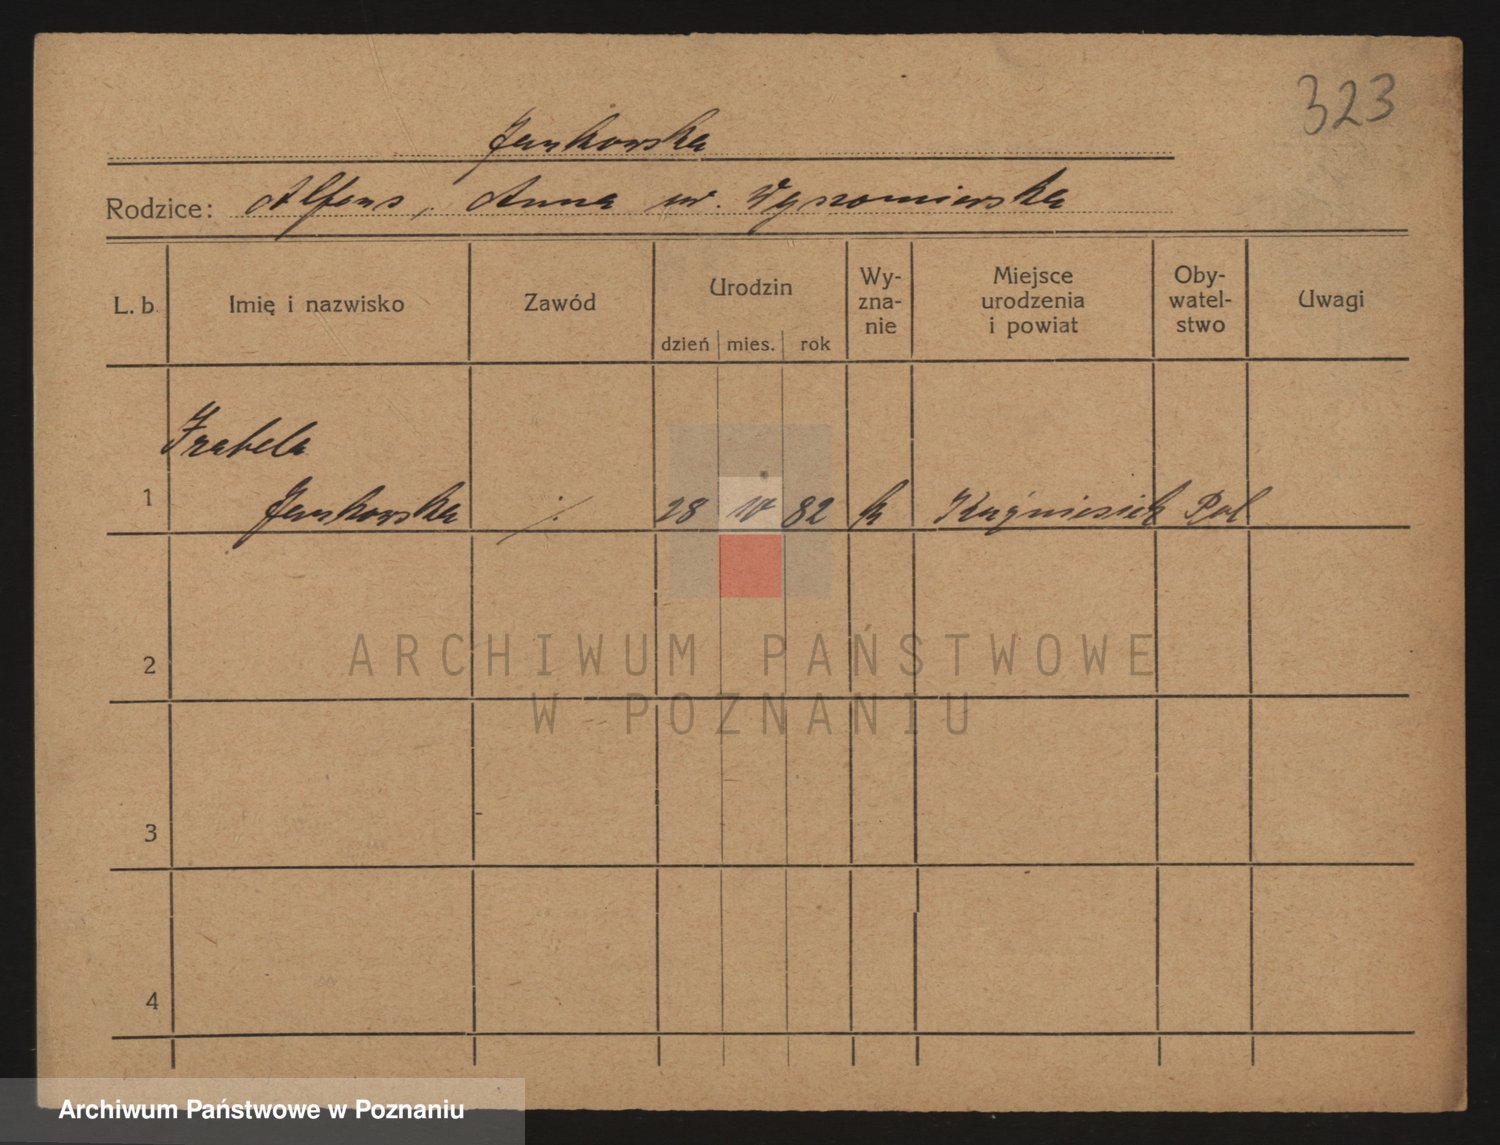 323
Jankowska
Rodzice: Alfons, Anna ur. Wyszomierska
L. b. Imię i nazwisko Zawód Urodzin Wy-zna-nie Miejsce urodzenia i powiat Oby-watel-stwo Uwagi
dzień mies. rok
Izabela
1 Jankowska ./. 28 IV 82 k Pol
2
ARCHIWUM PAŃSTWOWE
W POZNANIU
3
4
Archiwum Państwowe w Poznaniu